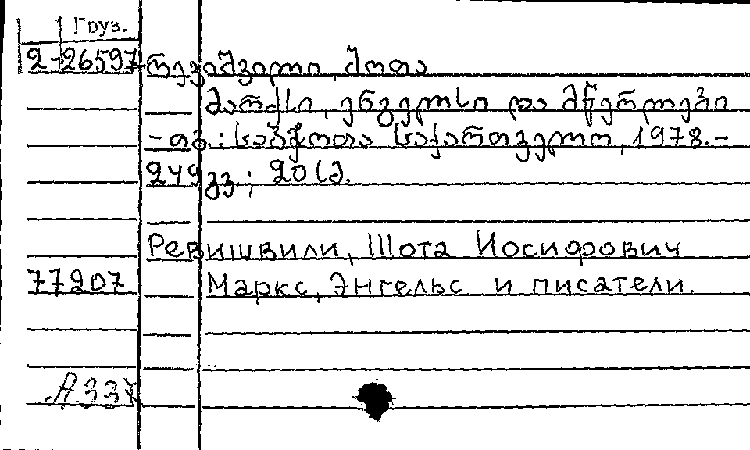 Груз.
2-26597 რევიშვილი, შოთა
მარქსი, ენგელსი და მწერლები
-თბ.: საბჭოთა საქართველო, 1978.-
249გვ.; 20 სმ.
Ревишвили, Шота Иосифович
77207 Маркс, Энгельс и писатели.